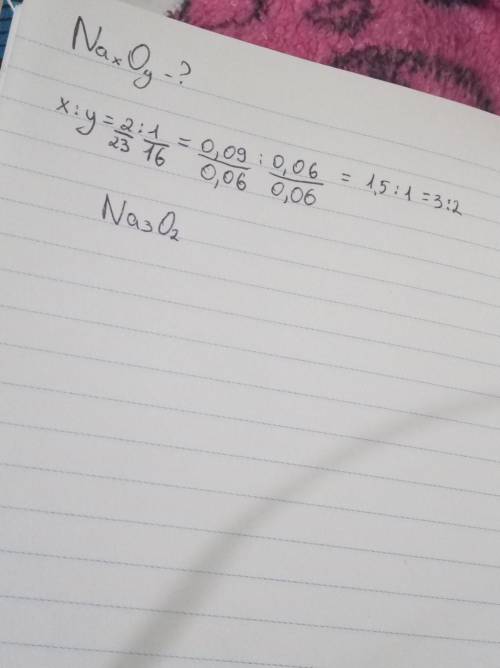 NaₓOᵧ - ?
x : y = 2/23 : 1/16 = 0,09/0,06 : 0,06/0,06 = 1,5 : 1 = 3 : 2
Na₃O₂